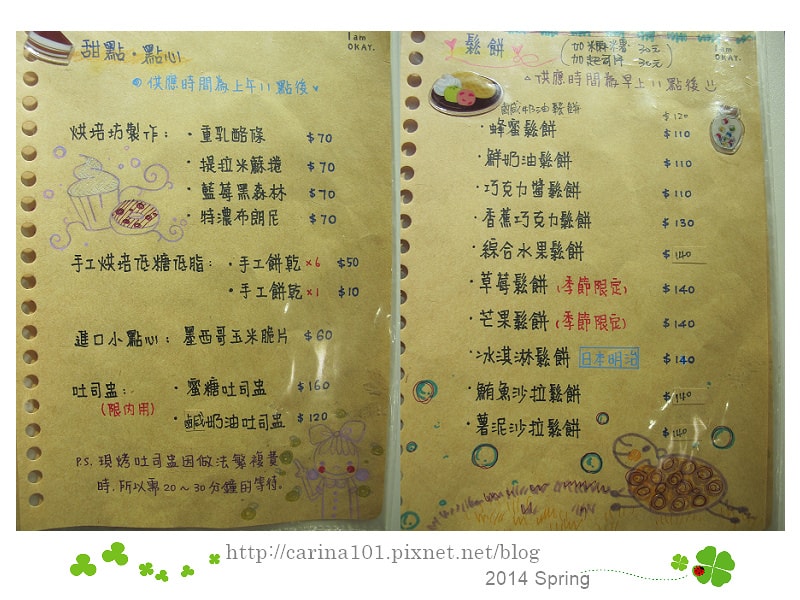 甜點·點心
I am
OKAY.
供應時間為上午11點後
烘培坊製作：·重乳酪條 $70
·提拉米蘇捲 $70
·藍莓黑森林 $70
·特濃布朗尼 $70
手工烘培低糖低脂：·手工餅乾×6 $50
·手工餅乾×1 $10
進口小點心：墨西哥玉米脆片 $60
吐司盅：·蜜糖吐司盅 $160
(限內用)
·鹹奶油吐司盅 $120
P.S. 現烤吐司盅因做法繁複費
時,所以需20~30分鐘的等待.
鬆餅
(加麻糬 30元)
(加起司片 30元)
I am
OKAY.
供應時間為早上11點後
鹹奶油鬆餅 $120
·蜂蜜鬆餅 $110
·鮮奶油鬆餅 $110
·巧克力醬鬆餅 $110
·香蕉巧克力鬆餅 $130
·綜合水果鬆餅 $140
·草莓鬆餅(季節限定) $140
·芒果鬆餅(季節限定) $140
·冰淇淋鬆餅 日本明治 $140
·鮪魚沙拉鬆餅 $140
·薯泥沙拉鬆餅 $140
http://carina101.pixnet.net/blog
2014 Spring